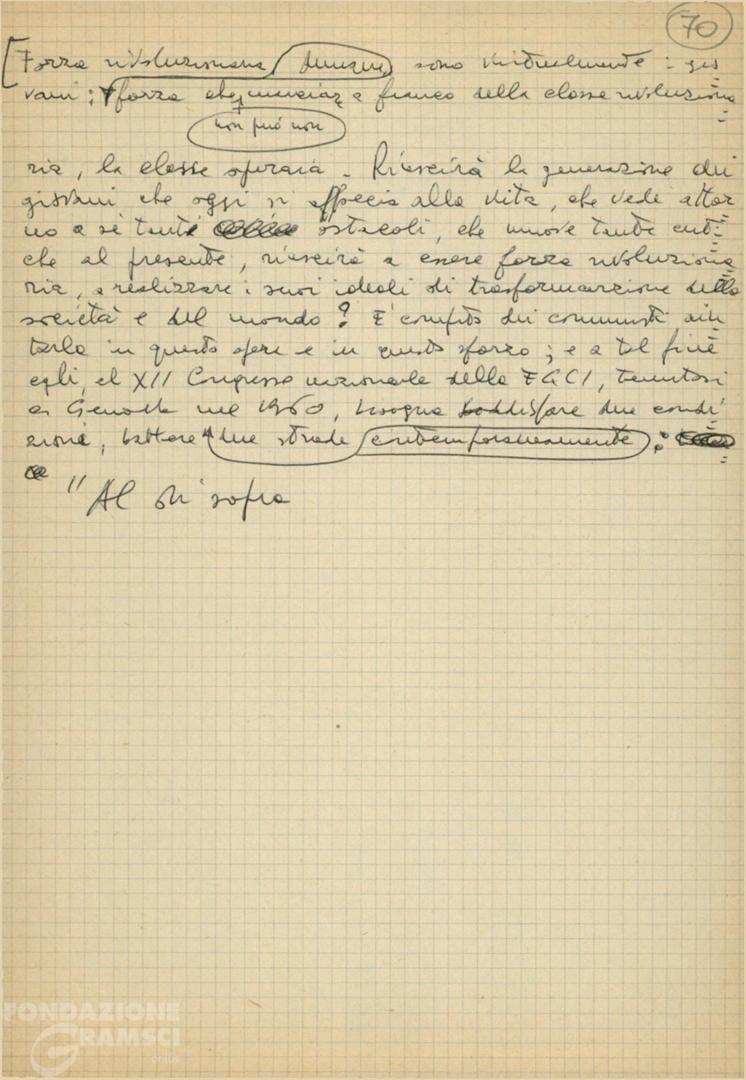 70
[Forza rivoluzionaria dunque sono virtualmente i gio=
vani; forza che marciar a fianco della classe rivoluziona=
non può non
ria, la classe operaia. Riuscirà la generazione dei
giovani che oggi si affaccia alla vita, che vede attor=
no a sé tanti ostacoli, che muove tante criti=
che al presente, riuscirà a essere forza rivoluziona=
ria, a realizzare i suoi ideali di trasformazione della
società e del mondo? È compito dei comunisti aiu=
tarla in questa opera e in questo sforzo; e a tal fine
egli, al XII Congresso nazionale della FGCI, tenutosi
a Genova nel 1960, bisogna soddisfare due condi=
zioni, battere due strade contemporaneamente:
"Al di sopra
FONDAZIONE
GRAMSCI
onlus